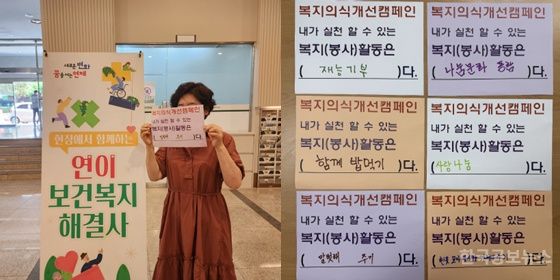 새로운 변화
꿈을이룬 연제
현장에서 함께하는
연이
보건복지
해결사
복지의식개선캠페인
내가 실천 할 수 있는
복지(봉사)활동은
( )다.
복지의식개선캠페인
내가 실천 할 수 있는
복지(봉사)활동은
( 재능기부 )다.
복지의식개선캠페인
내가 실천 할 수 있는
복지(봉사)활동은
( 나눔문화 동참 )다.
복지의식개선캠페인
내가 실천 할 수 있는
복지(봉사)활동은
( 함께 밥먹기 )다.
복지의식개선캠페인
내가 실천 할 수 있는
복지(봉사)활동은
( 사랑나눔 )다.
복지의식개선캠페인
내가 실천 할 수 있는
복지(봉사)활동은
( 주기 )다.
복지의식개선캠페인
내가 실천 할 수 있는
복지(봉사)활동은
( )다.
한국공보뉴스